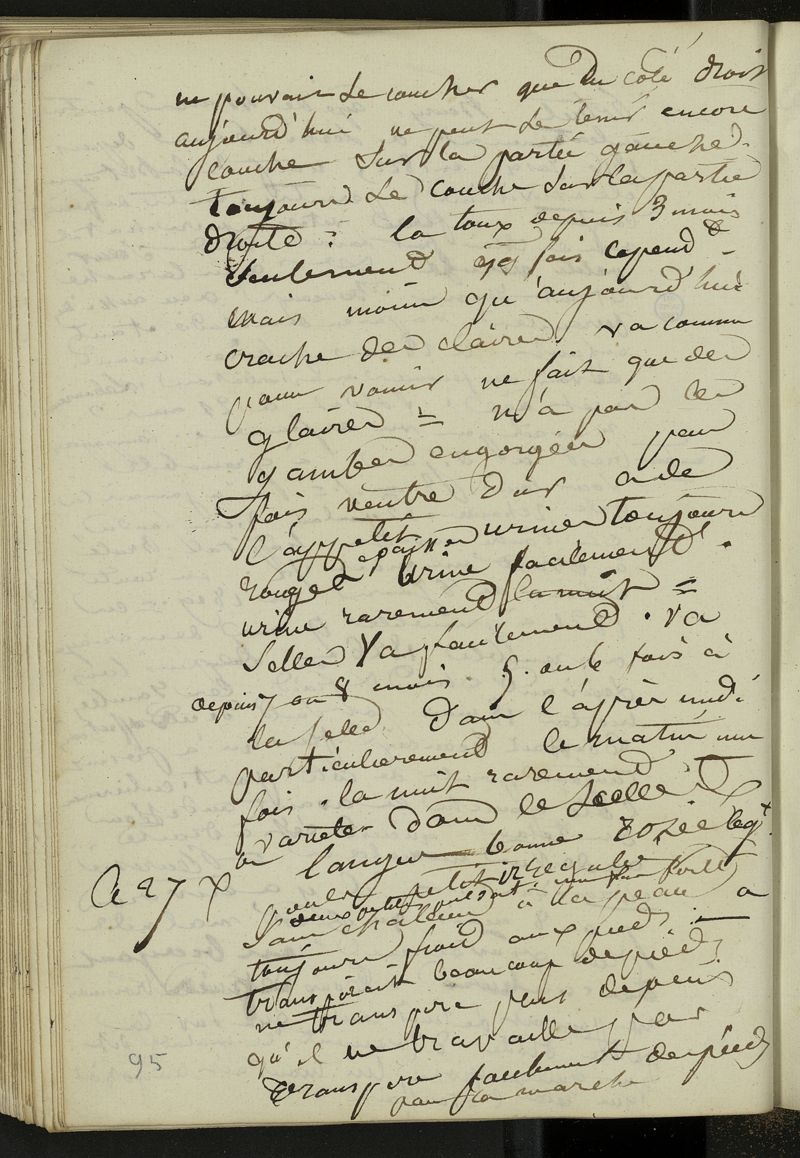 ne pouvait se coucher que du coté droit
aujourd'hui ne peut se tenir encore
couché sur la partie gauche
toujours se couche sur la partie
droite : la toux depuis 3 mois
seulement fois cepend
mais moins qu'aujourd'hui
crache des claires. va comme
pour vomir ne fait que des
glaires = n'a pas les
jambes engorgées par
fois ventre dur a de
l'appetit urines toujours
rouges epaisses urine facilement.
urine rarement la nuit =
selles va facilement. va
depuis 7 ou 8 mois. 5. ou 6 fois à
la selle dans l'après midi
particulierement le matin une
fois. la nuit rarement
varietes dans le scelles
langue bonne rosée leg.t
Ce 27 x pouls petit irregulier
sans chaleur à la peau a
toujours froid aux pieds. —
transpirait beaucoup des pieds
ne transpire plus depuis
qu'il ne travaille pas
transpire facilement des pieds
par la marche
95